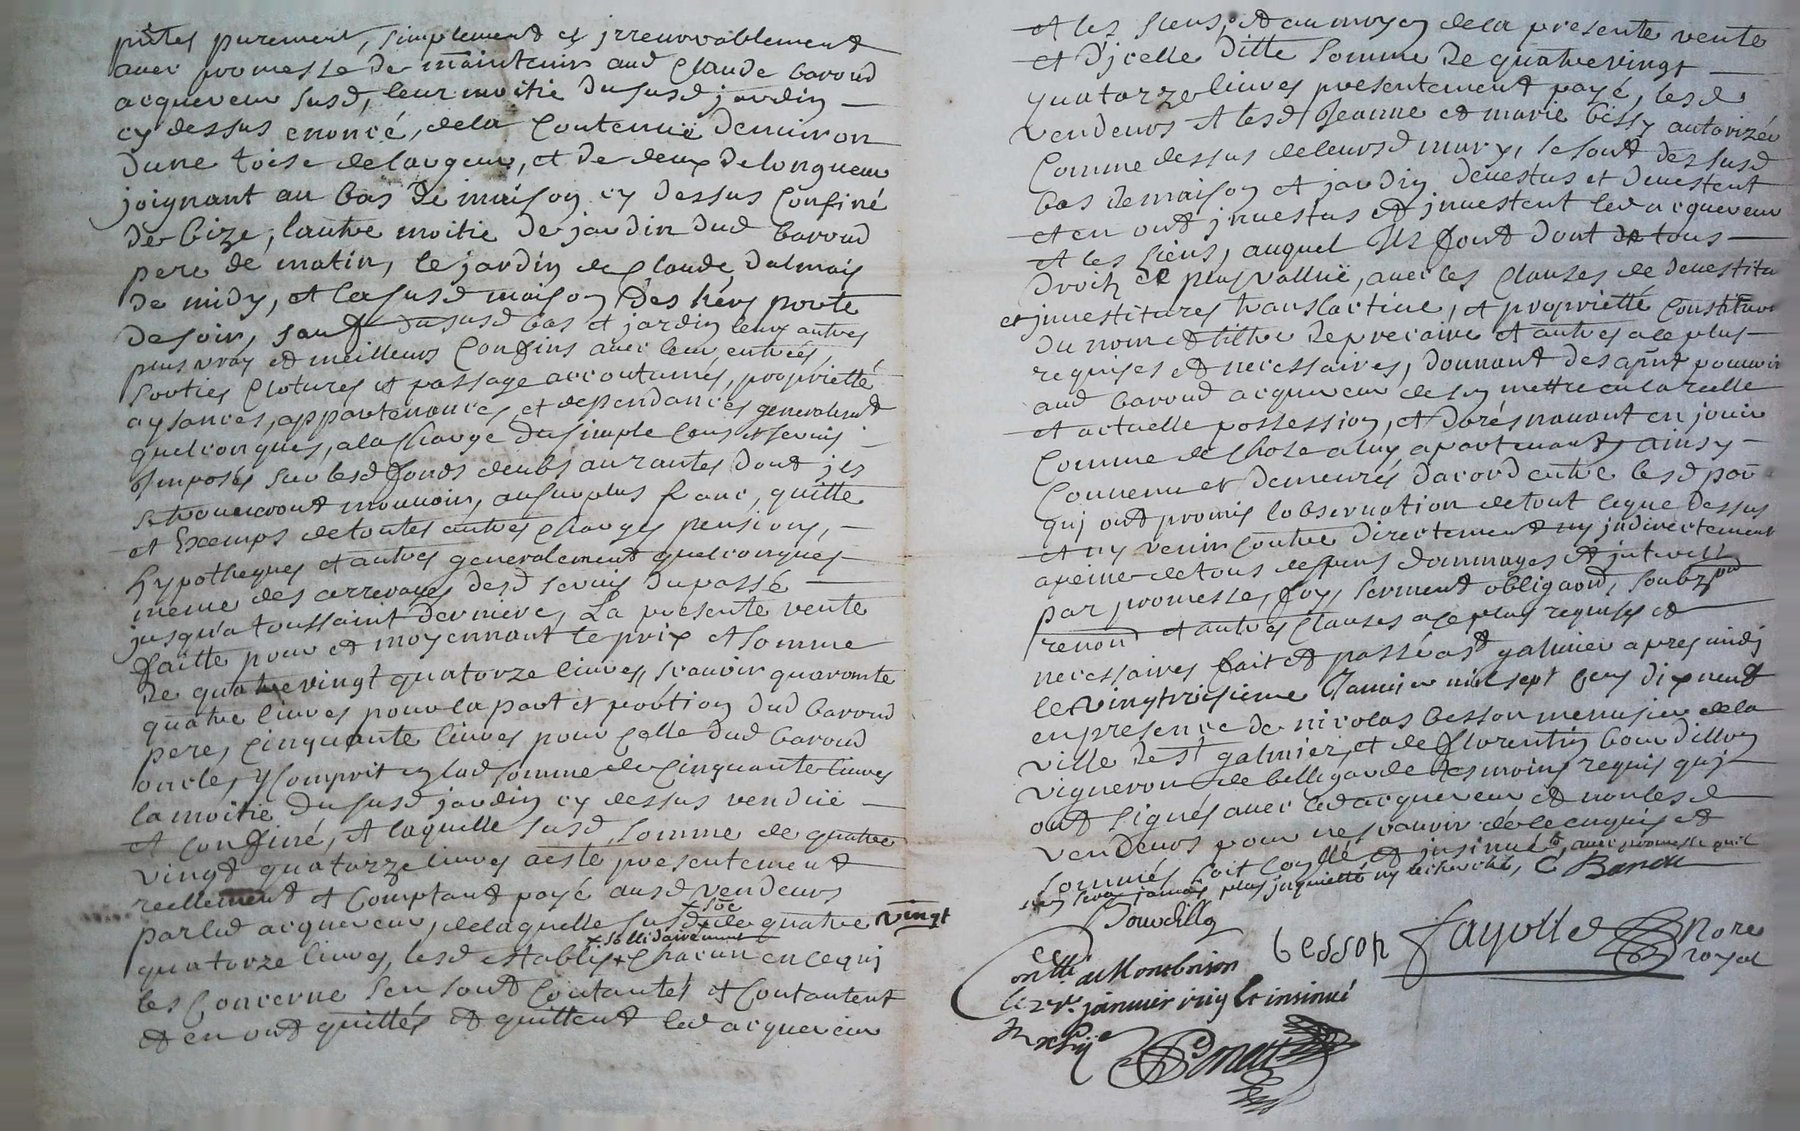 pntes purement, simplement et jrreuocablement
auec promesse de maintenir aud Claude baroud
acquereur susd, leur moitié du susd jardin
cy dessus enoncé, dela Contenüe denuiron
dune toise delargeur, et de deux delongueur
joignant au bas de maison cy dessus Confiné
de bize, lautre moitié de jardin dud baroud
pere de matin, le jardin de Claude dalmais
de midy, et la susd maison des hers ponte
de soir, sauf du susd bas et jardin leurs autres
plus vray et meilleurs Confins auec leur entrées,
sorties Clotures et passage accoutumés, proprietté
aysances, appartenances et dependances generalement
quelconques, ala Charge du simple Cens et seruis
Imposés sur lesd fonds deubs aux rantes dont jls
se trouueront mouuoir, au surplus franc, quitte
et Exemps detoutes autres Charges pensions,
hypotheques et autres generalement quelconques
meme des arrerages desd seruis du passé
jusqu'a toussaint derniere, La presente vente
faitte pour et moyennant le prix et somme
de quatre vingt quatorze liures, scauoir quarante
quatre liures pour la part et portion dud baroud
pere, Cinquante liures pour Celle dud baroud
oncle, y Comprit en lad somme de Cinquante liures
la moitié du susd jardin cy dessus vendüe
et Confiné, et laquelle susd somme de quatre
vingt quatorze liures aesté presentement
reellement et Comptant payé ausd vendeurs
parled acquereur, delaquelle susd x soe de quatre vingt
quatorze liures, lesd establis x sollidairement Chacun en cequj
les Concerne sen sont Contantés et Contantent
et en ont quittés et quittent led acquereur
et les siens, et au moyen dela presente vente
et d'jcelle ditte somme de quatre vingt
quatorze liures presentement payé, lesd
vendeurs et lesd Jeanne et marie bissy autorizée
Comme dessus de leursd mary, se sont des susd
bas de maison et jardin deuestus et deuestent
et en ont jnuestus et jnuestent led acquereur
et les siens, auquel Ils font dont de tous
droits de plus vallüe, auec les Clauses de deuestitu
et jnuestitures translactiue, et proprietté Constitution
du nom et tiltre de precaire et autres a ce plus
requises et necessaires, donnant des apnt pouuoir
aud baroud acquereur de sen mettre en la reelle
et actuelle possession, et dorésnauant en jouir
Comme de Chose a luy apartenant, ainsy
Conuenu et demeurés dacord entre lesd par
quj ont promis lobseruation de tout ceque dessus
et ny venir Contre directement ny jndirectement
apeine de tous despens dommages et jnterest
par promesse, foy, serment obligaon, soubzon
renon et autres Clauses a ce plus requises et
necessaires fait et passé a st galmier apres midj
le vingtroisieme Januier mil sept Cens dix neuf
en presence de nicolas besson menusier dela
ville de st galmier, et de florentin bourdillon
vigneron de bellegarde tesmoins requis quj
ont signés auec led acquereur et non lesd
vendeurs pour ne scauoir de ce enquis et
sommés soit Collé et jnsinué auec promesse quil
nen sera jamais plus jnquietté ny recherché, C Baroud
Bourdillon
besson fayolle Nore royal
Conllé a Montbrison
le 27e januier 1719 et insinué